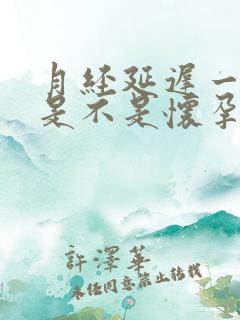 月经延遲一
是不是懷孕
許澤華
未经同意禁止转载